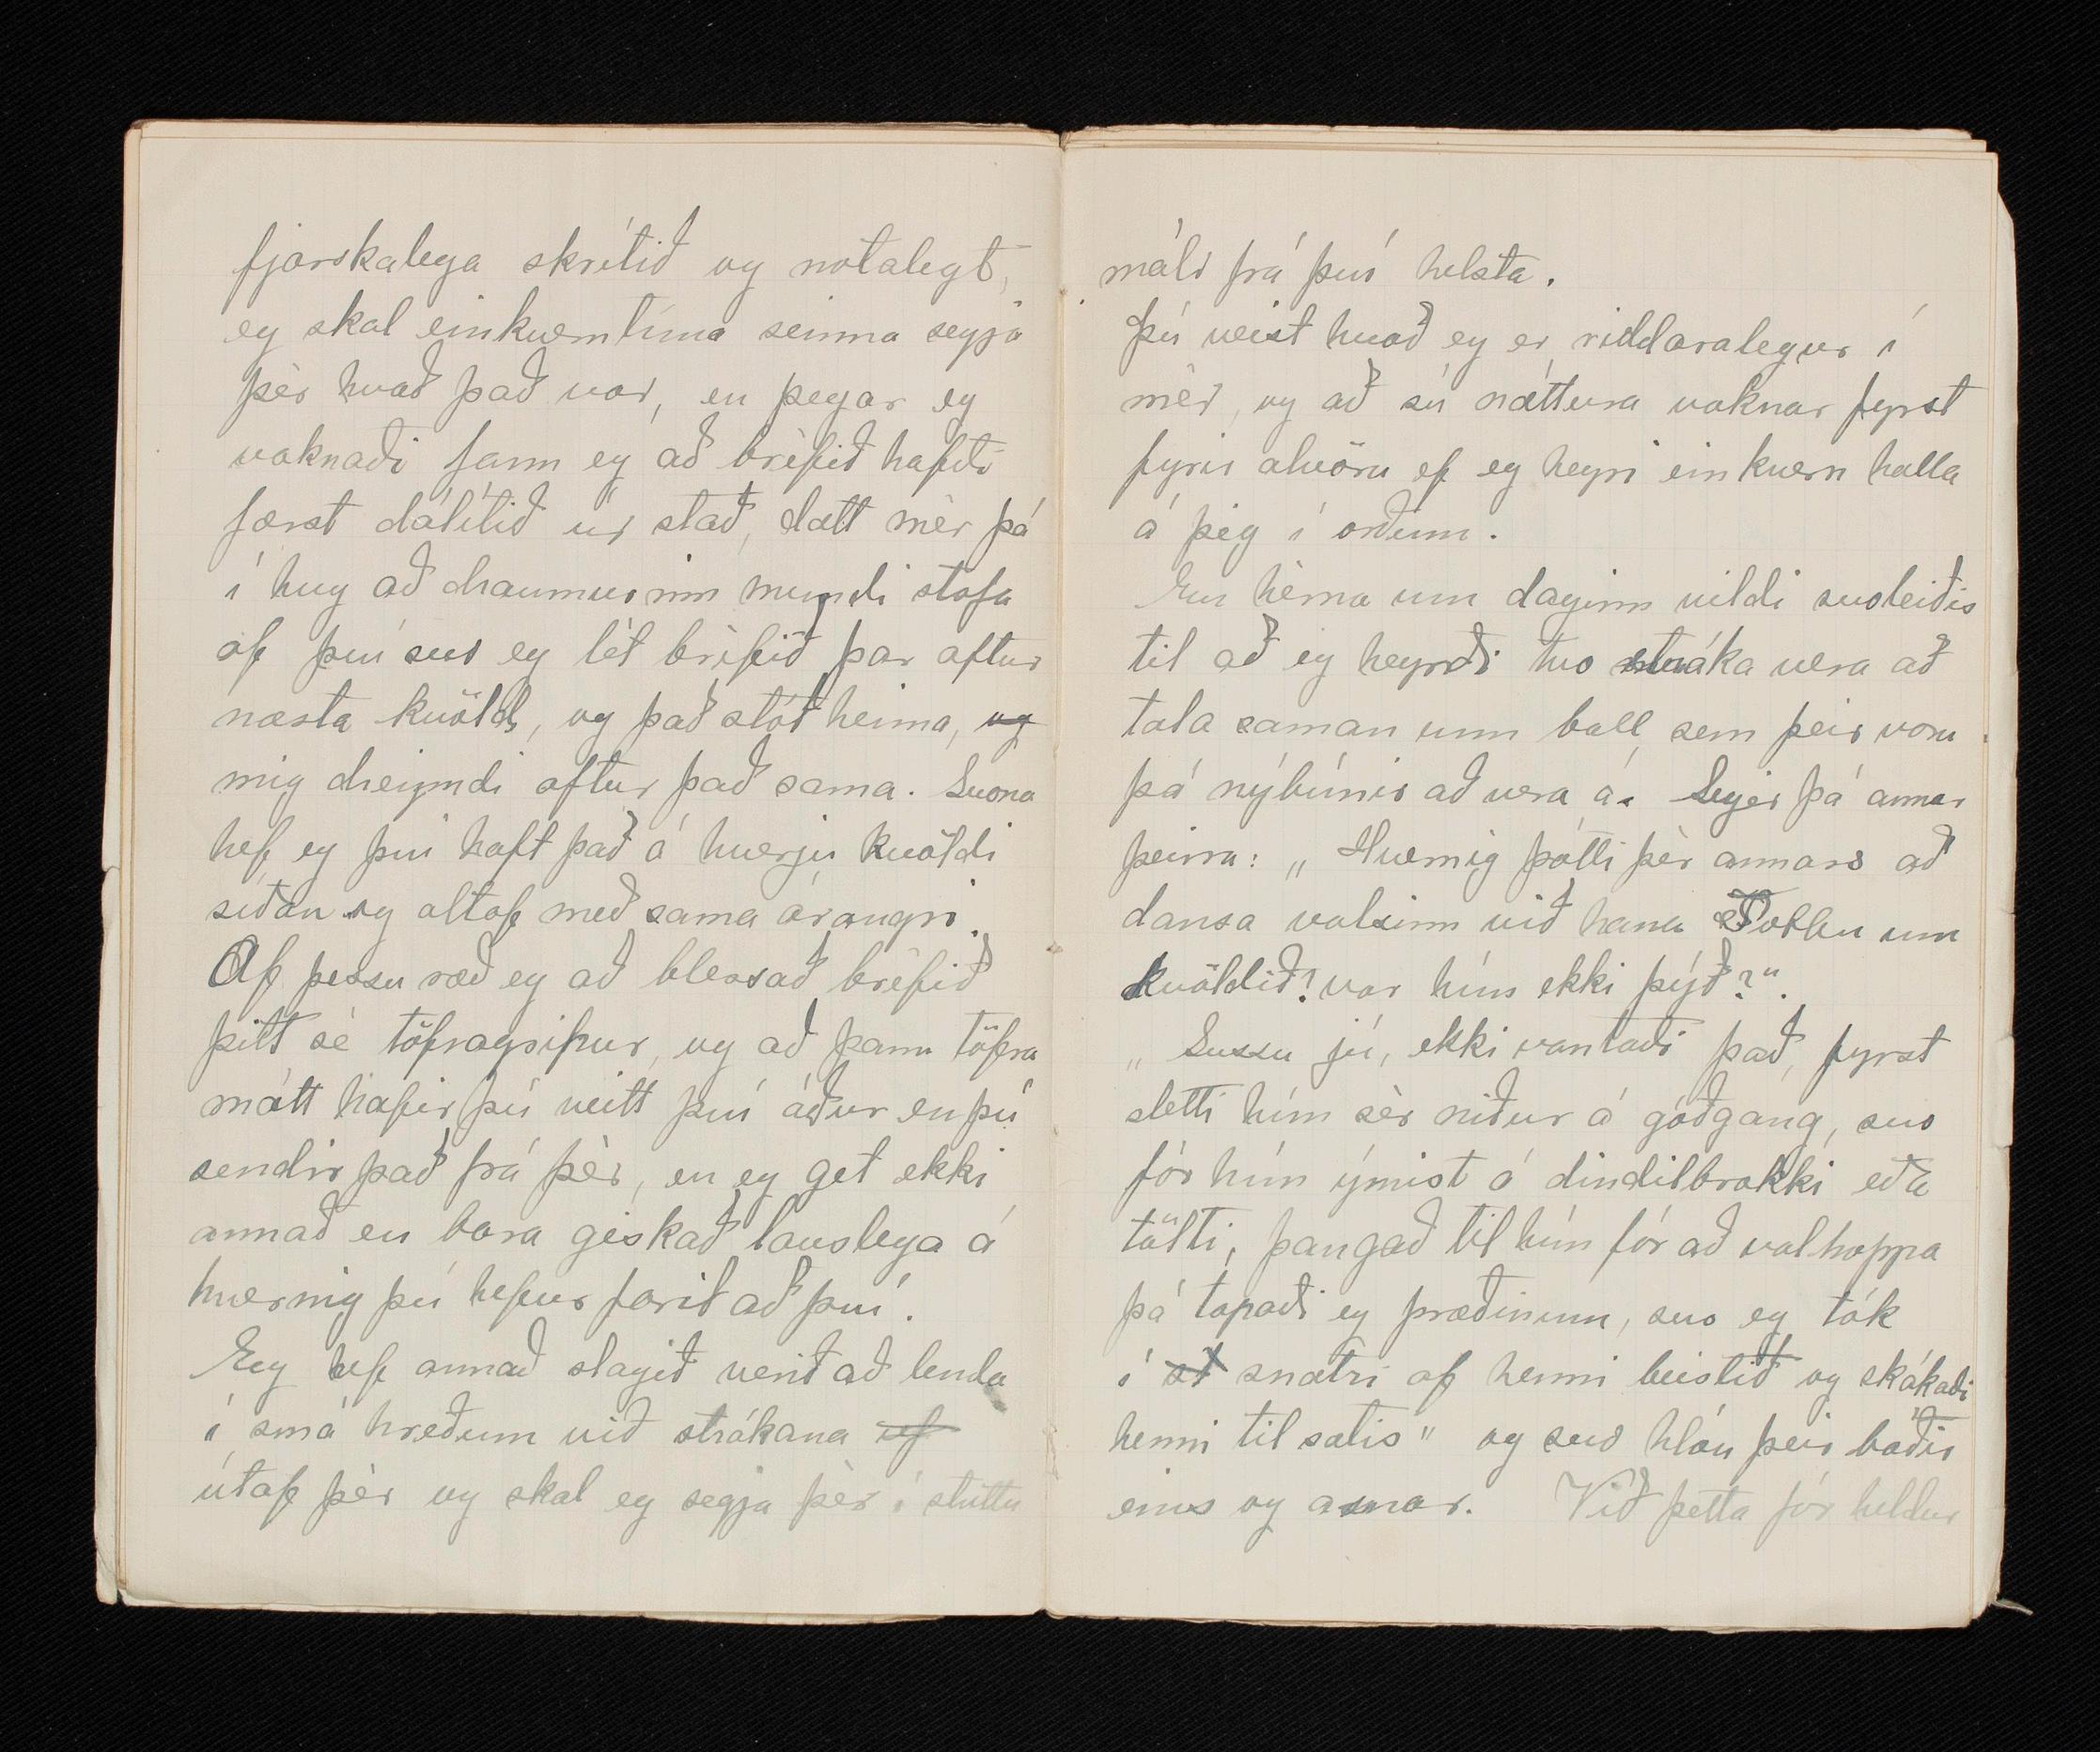 fjarskalega skrítið og notalegt,
eg skal einkverntíma seinna segja
þèr hvað það var, en þegar eg
vaknaði fann eg að brèfið hafði
færst dálítið úr stað, datt mèr þá
í hug að draumurinn mundi stafa
af því svo eg lèt brèfið þar aftur
næsta kvöld, og það stóð heima, og
mig dreymdi aftur það sama. Svona
hef eg því haft það á hverju kvöldi
síðan og altaf með sama árangri.
Af þessu ræð eg að blessað brèfið
þitt sè töfragripur, og að þann töfra
mátt hafir þú veitt því áður en þú
sendir það frá þèr, en eg get ekki
annað en bara giskað lauslega á
hvernig þú hefur farið að því.
Eg hef annað slagið verið að lenda
í smá hreðum við strákana ef
útaf þèr og skal eg segja þèr í stuttu
máli frá því helsta.
Þú veist hvað eg er riddaralegur í
mèr, og að sú náttúra vaknar fyrst
fyrir alvöru ef eg heyri einkvern halla
á þig í orðum.
En hèrna um daginn vildi svoleiðis
til að eg heyrði tvo stráka vera að
tala saman um ball sem þeir voru
þá nýbúnir að vera á. Segir þá annar
þeirra: „Hvernig þótti þèr annars að
dansa valsinn við hana Tobbu um
kvöldið? var hún ekki þýð?“.
„Sussu jú, ekki vantaði það, fyrst
sletti hún sèr niður á góðgang, svo
fór hún ýmist á dindilbrokki eða
tölti, þangað til hún fór að valhoppa
þá tapaði eg þræðinum, svo eg tók
í st snatri af henni beislið og skákaði
henni til sætis“ og svo hlóu þeir báðir
eins og asnar. Við þetta fór heldur